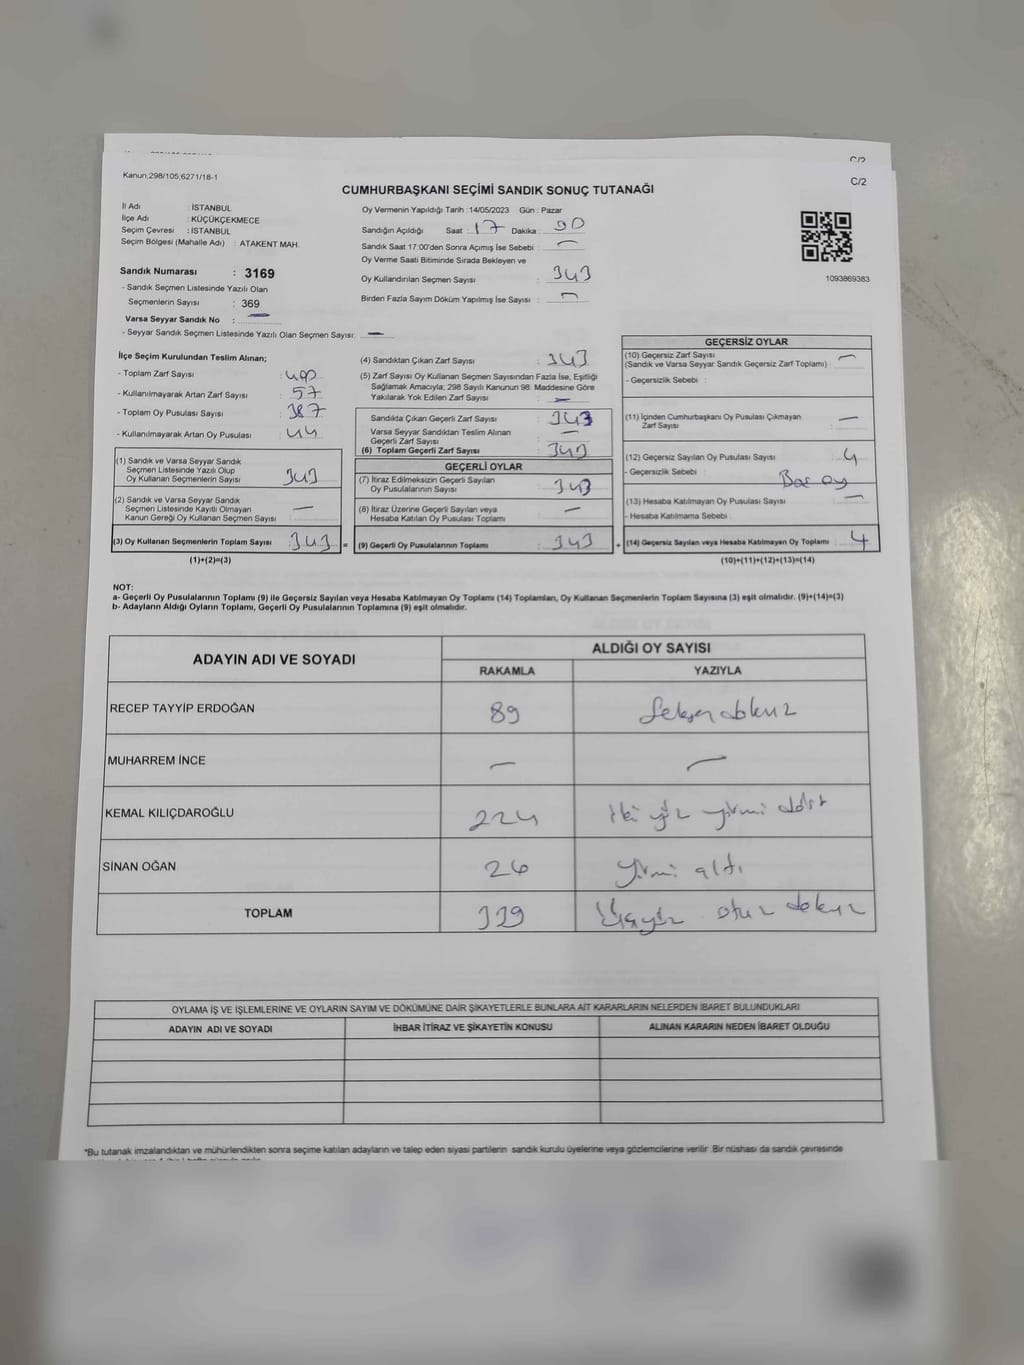 C/2
Kanun;298/105;6271/18-1
C/2
CUMHURBAŞKANI SEÇİMİ SANDIK SONUÇ TUTANAĞI
İl Adı : İSTANBUL
İlçe Adı : KÜÇÜKÇEKMECE
Seçim Çevresi : İSTANBUL
Seçim Bölgesi (Mahalle Adı) : ATAKENT MAH.
Sandık Numarası : 3169
- Sandık Seçmen Listesinde Yazılı Olan
Seçmenlerin Sayısı : 369
Varsa Seyyar Sandık No : —
- Seyyar Sandık Seçmen Listesinde Yazılı Olan Seçmen Sayısı: —
Oy Vermenin Yapıldığı Tarih :14/05/2023 Gün : Pazar
Sandığın Açıldığı Saat : 17 Dakika :
Sandık Saat 17:00'den Sonra Açımış İse Sebebi : —
Oy Verme Saati Bitiminde Sırada Bekleyen ve
Oy Kullandırılan Seçmen Sayısı : 343
Birden Fazla Sayım Döküm Yapılmış İse Sayısı : —
1093869383
İlçe Seçim Kurulundan Teslim Alınan;
- Toplam Zarf Sayısı : 400
- Kullanılmayarak Artan Zarf Sayısı : 57
- Toplam Oy Pusulası Sayısı : 387
- Kullanılmayarak Artan Oy Pusulası : 44
(1) Sandık ve Varsa Seyyar Sandık
Seçmen Listesinde Yazılı Olup
Oy Kullanan Seçmenlerin Sayısı : 343
(2) Sandık ve Varsa Seyyar Sandık
Seçmen Listesinde Kayıtlı Olmayan
Kanun Gereği Oy Kullanan Seçmen Sayısı : —
(3) Oy Kullanan Seçmenlerin Toplam Sayısı : 343 =
(1)+(2)=(3)
(4) Sandıktan Çıkan Zarf Sayısı : 343
(5) Zarf Sayısı Oy Kullanan Seçmen Sayısından Fazla İse, Eşitliği
Sağlamak Amacıyla; 298 Sayılı Kanunun 98. Maddesine Göre
Yakılarak Yok Edilen Zarf Sayısı : —
Sandıkta Çıkan Geçerli Zarf Sayısı : 343
Varsa Seyyar Sandıktan Teslim Alınan
Geçerli Zarf Sayısı : —
(6) Toplam Geçerli Zarf Sayısı : 343
GEÇERLİ OYLAR
(7) İtiraz Edilmeksizin Geçerli Sayılan
Oy Pusulalarının Sayısı : 343
(8) İtiraz Üzerine Geçerli Sayılan veya
Hesaba Katılan Oy Pusulası Toplamı : —
(9) Geçerli Oy Pusulalarının Toplamı : 343 +
GEÇERSİZ OYLAR
(10) Geçersiz Zarf Sayısı
(Sandık ve Varsa Seyyar Sandık Geçersiz Zarf Toplamı) : —
- Geçersizlik Sebebi :
(11) İçinden Cumhurbaşkanı Oy Pusulası Çıkmayan
Zarf Sayısı : —
(12) Geçersiz Sayılan Oy Pusulası Sayısı : 4
- Geçersizlik Sebebi : Boş oy
(13) Hesaba Katılmayan Oy Pusulası Sayısı : —
- Hesaba Katılmama Sebebi :
(14) Geçersiz Sayılan veya Hesaba Katılmayan Oy Toplamı : 4
(10)+(11)+(12)+(13)=(14)
NOT:
a- Geçerli Oy Pusulalarının Toplamı (9) ile Geçersiz Sayılan veya Hesaba Katılmayan Oy Toplamı (14) Toplamları, Oy Kullanan Seçmenlerin Toplam Sayısına (3) eşit olmalıdır. (9)+(14)=(3)
b- Adayların Aldığı Oyların Toplamı, Geçerli Oy Pusulalarının Toplamına (9) eşit olmalıdır.
ADAYIN ADI VE SOYADI
ALDIĞI OY SAYISI
RAKAMLA YAZIYLA
RECEP TAYYİP ERDOĞAN 89 Seksendokuz
MUHARREM İNCE — —
KEMAL KILIÇDAROĞLU 224 İki yüz yirmi dört
SİNAN OĞAN 26 yirmi altı
TOPLAM 339 Üçyüz otuz dokuz
OYLAMA İŞ VE İŞLEMLERİNE VE OYLARIN SAYIM VE DÖKÜMÜNE DAİR ŞİKAYETLERLE BUNLARA AİT KARARLARIN NELERDEN İBARET BULUNDUKLARI
ADAYIN ADI VE SOYADI İHBAR İTİRAZ VE ŞİKAYETİN KONUSU ALINAN KARARIN NEDEN İBARET OLDUĞU
*Bu tutanak imzalandıktan ve mühürlendikten sonra seçime katılan adayların ve talep eden siyasi partilerin sandık kurulu üyelerine veya gözlemcilerine verilir .Bir nüshası da sandık çevresinde